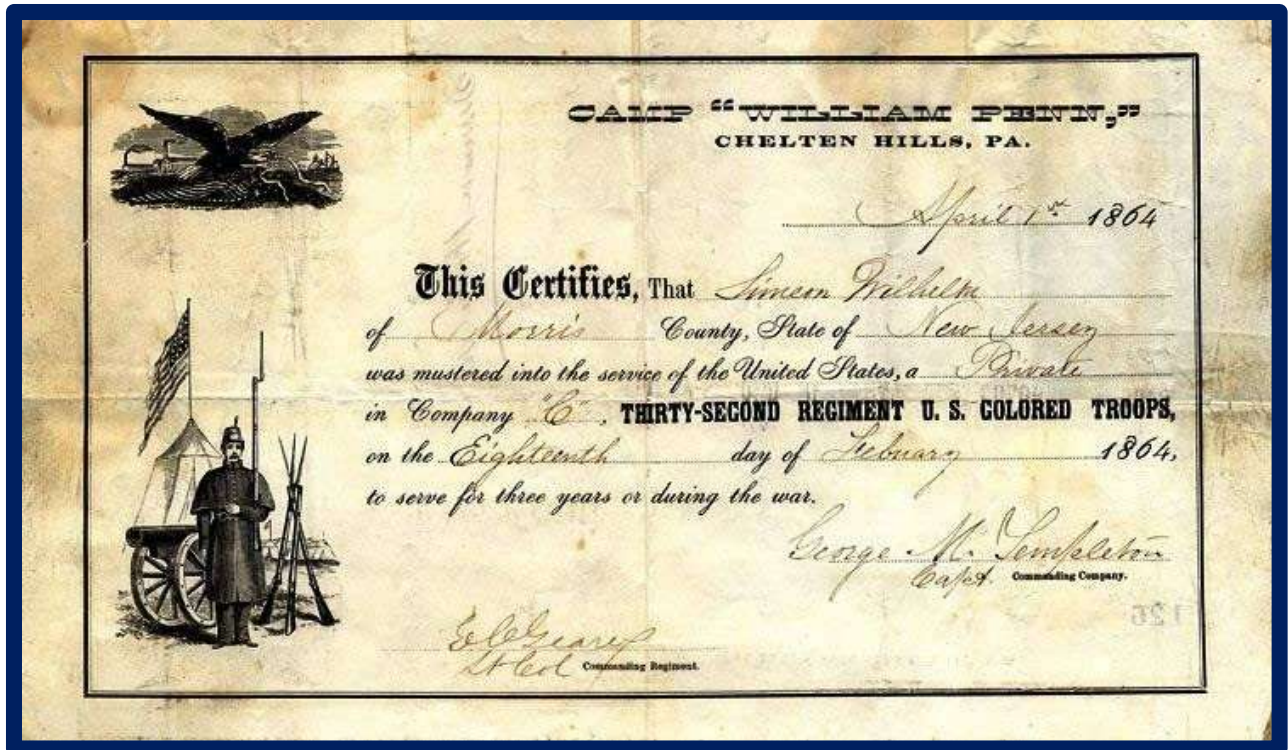 CAMP "WILLIAM PENN,"
CHELTEN HILLS, PA.
April 1st 1864
This Certifies, That Simeon Wilhelm
of Morris County, State of New Jersey
was mustered into the service of the United States, a Private
in Company "C", THIRTY-SECOND REGIMENT U. S. COLORED TROOPS,
on the Eighteenth day of Febuary 1864,
to serve for three years or during the war.
George M. Templeton
Capt. Commanding Company.
126
E C Geary
Lt Col Commanding Regiment.